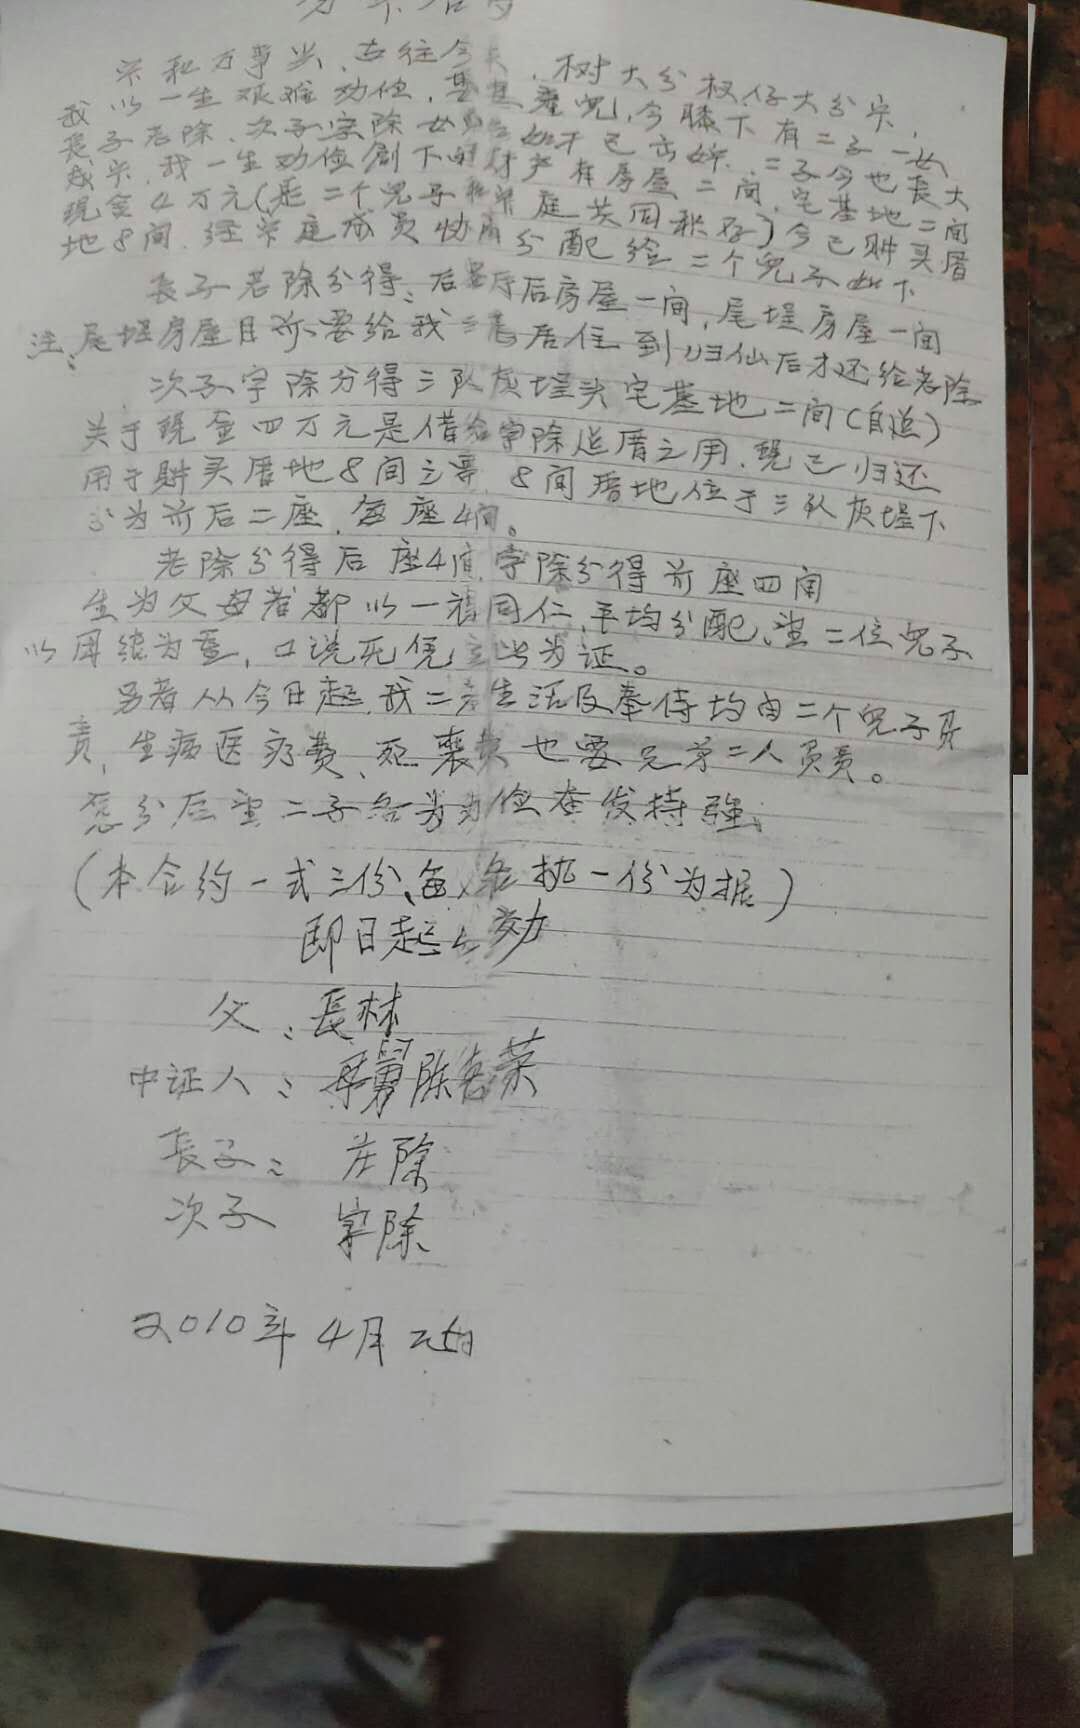 分家合约
家和万事兴、古往今来，树大分枝仔大分家，
我以一生艰难勤俭，养儿，今膝下有二子一女
长子老除、次子字除 女已出嫁、二子今也长大
成家，我一生勤俭创下的财产有房屋二间，宅基地二间
现金4万元(是二个儿子和家庭共同积存)今已购买厝
地8间，经家庭成员协商分配给二个儿子如下
长子老除分得：后厅后房屋一间，尾埕房屋一间
注：尾埕房屋目前要给我二老居住到归仙后才还给老除
次子字除分得三队灰埕头宅基地二间(自造)
关于现金四万元是借给字除造厝之用，现已归还
用于购买厝地8间之事，8间厝地位于三队灰埕下
分为前后二座，每座4间。
老除分得后座4间，字除分得前座四间
生为父母者都以一视同仁，平均分配，望二位儿子
以团结为重，口说无凭立此为证。
另者从今日起，我二老生活及奉侍均由二个儿子负
责，生病医疗费、死丧费也要兄弟二人负责。
分后望二子各勤俭奋发持强。
(本合约一式三份、每人各执一份为据)
即日起生效
父：长林
中证人：母舅陈老荣
长子：老除
次子 字除
2010年4月